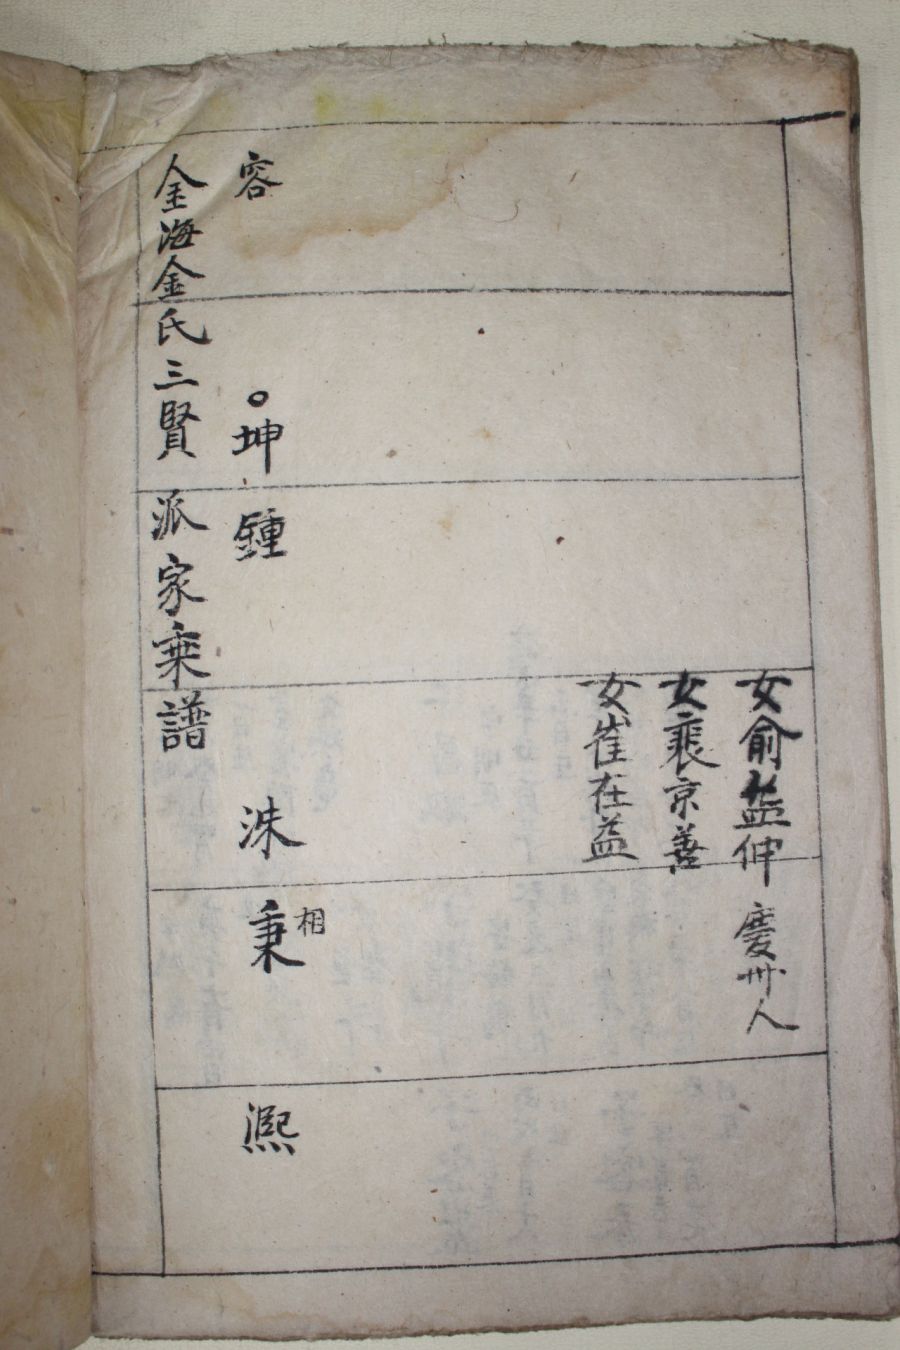 女兪益仲 慶州人
女裵京善
女崔在益
相
容 坤 鍾 洙 秉 熙
金海金氏三賢派家乘譜